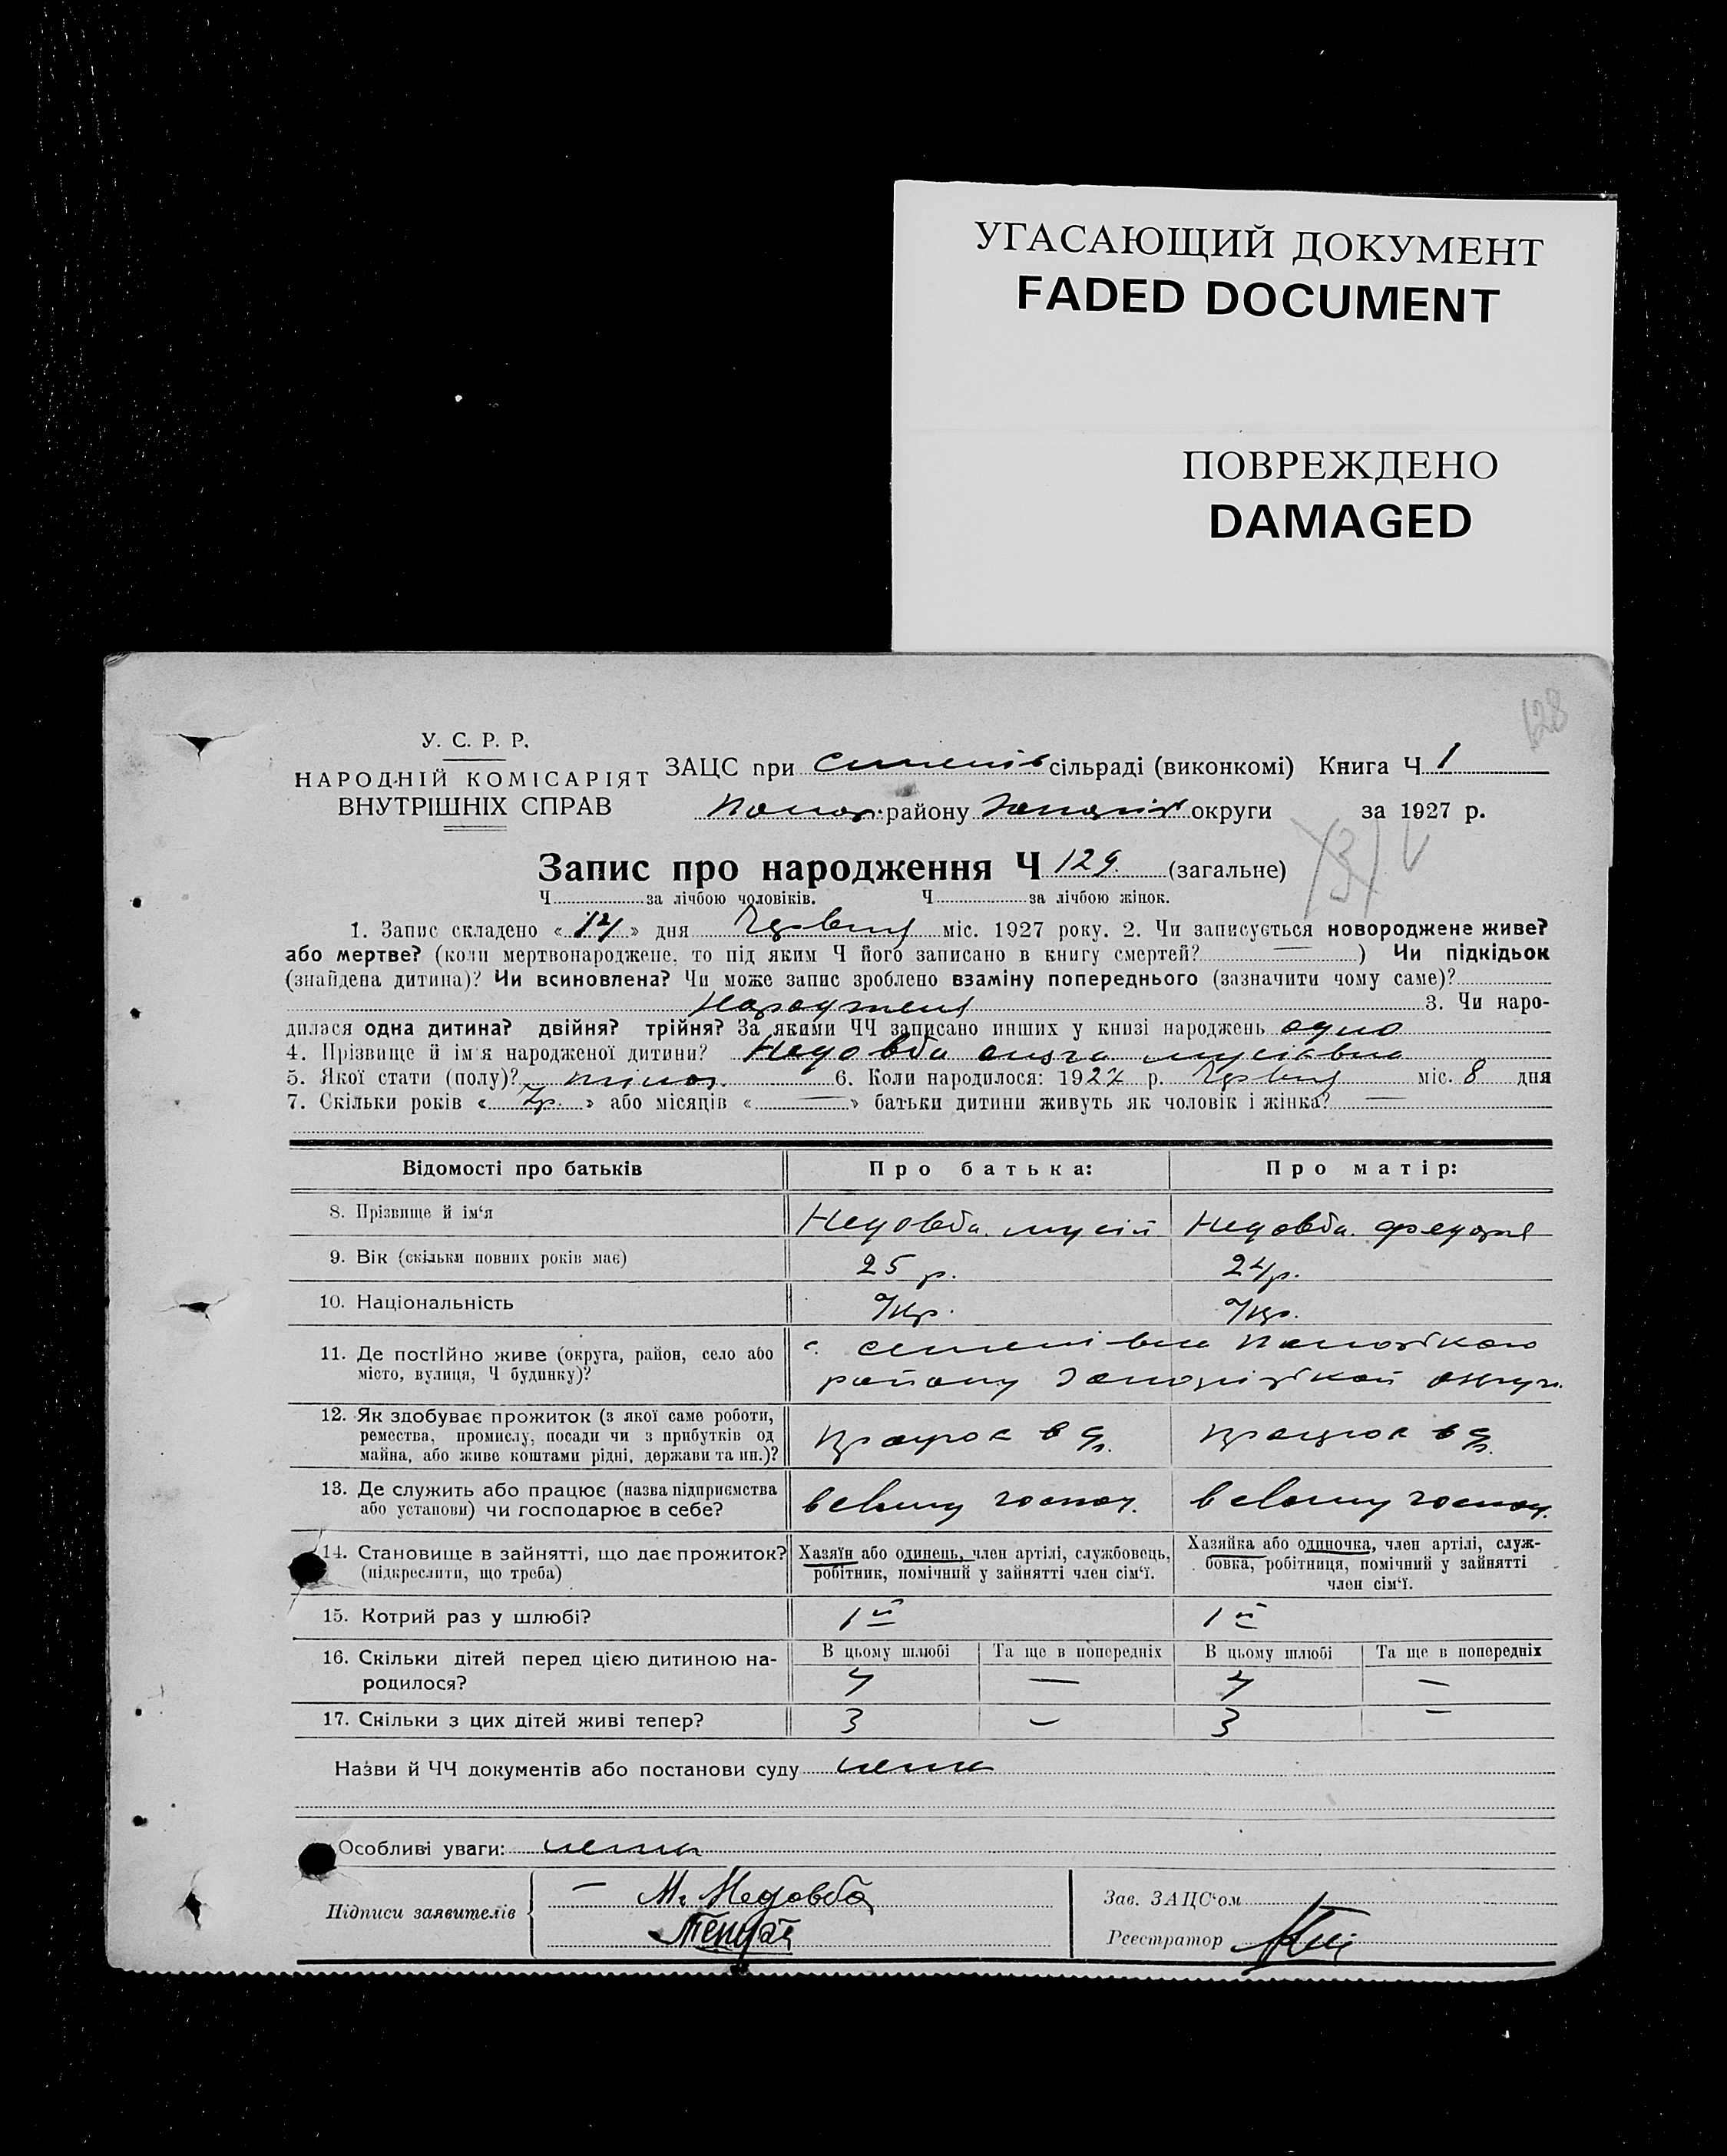 УГАСАЮЩИЙ ДОКУМЕНТ
FADED DOCUMENT
ПОВРЕЖДЕНО
DAMAGED
128
У. С. Р. Р.
НАРОДНІЙ КОМІСАРІЯТ
ВНУТРІШНІХ СПРАВ
ЗАЦС при Семенів сільраді (виконкомі) Книга Ч 1
району округи за 1927 р.
Запис про народження Ч 129. (загальне)
Ч за лічбою чоловіків. Ч за лічбою жінок.
1. Запис складено « 14 » дня міс. 1927 року. 2. Чи записується новороджене живе?
або мертве? (коли мертвонароджене, то під яким Ч його записано в книгу смертей? — ) Чи підкідьок
(знайдена дитина)? Чи всиновлена? Чи може запис зроблено взаміну попереднього (зазначити чому саме)?
3. Чи наро-
дилася одна дитина? двійня? трійня? За якими ЧЧ записано инших у книзі народжень одно
4. Прізвище й ім'я народженої дитини? Недовба Мусіївна
5. Якої стати (полу)? жіноч. 6. Коли народилося: 1927 р. міс. 8 дня
7. Скільки років « » або місяців « — » батьки дитини живуть як чоловік і жінка? —
Відомості про батьків Про батька: Про матір:
8. Прізвище й ім'я Недовба. Мусій Недовба. Федора
9. Вік (скільки повних років має) 25 р. 24 р.
10. Національність Укр. Укр.
11. Де постійно живе (округа, район, село або
місто, вулиця, Ч будинку)?
с. Семенівка
району Запорізької округи
12. Як здобуває прожиток (з якої саме роботи,
ремества, промислу, посади чи з прибутків од
майна, або живе коштами рідні, держави та ин.)?
13. Де служить або працює (назва підприємства
або установи) чи господарює в себе?
в своему госпо. в своему госпо.
14. Становище в зайнятті, що дає прожиток?
(підкреслити, що треба)
Хазяїн або одинець, член артілі, службовець,
робітник, помічний у зайнятті член сім'ї.
Хазяйка або одиночка, член артілі, служ-
бовка, робітниця, помічний у зайнятті
член сім'ї.
15. Котрий раз у шлюбі? 1й 1й
16. Скільки дітей перед цією дитиною на-
родилося?
В цьому шлюбі Та ще в попередніх В цьому шлюбі Та ще в попередніх
4 — 4 —
17. Скільки з цих дітей живі тепер? 3 — 3 —
Назви й ЧЧ документів або постанови суду нема
Особливі уваги: нема
Підписи заявителів
М. Недовба
Зав. ЗАЦС'ом
Реєстратор